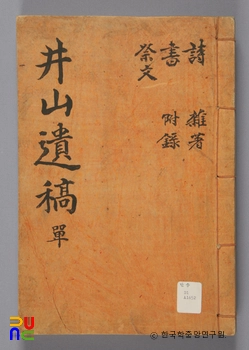 井山遺稿 單
詩 雜著
書 附錄
祭文
한국학중앙연구원